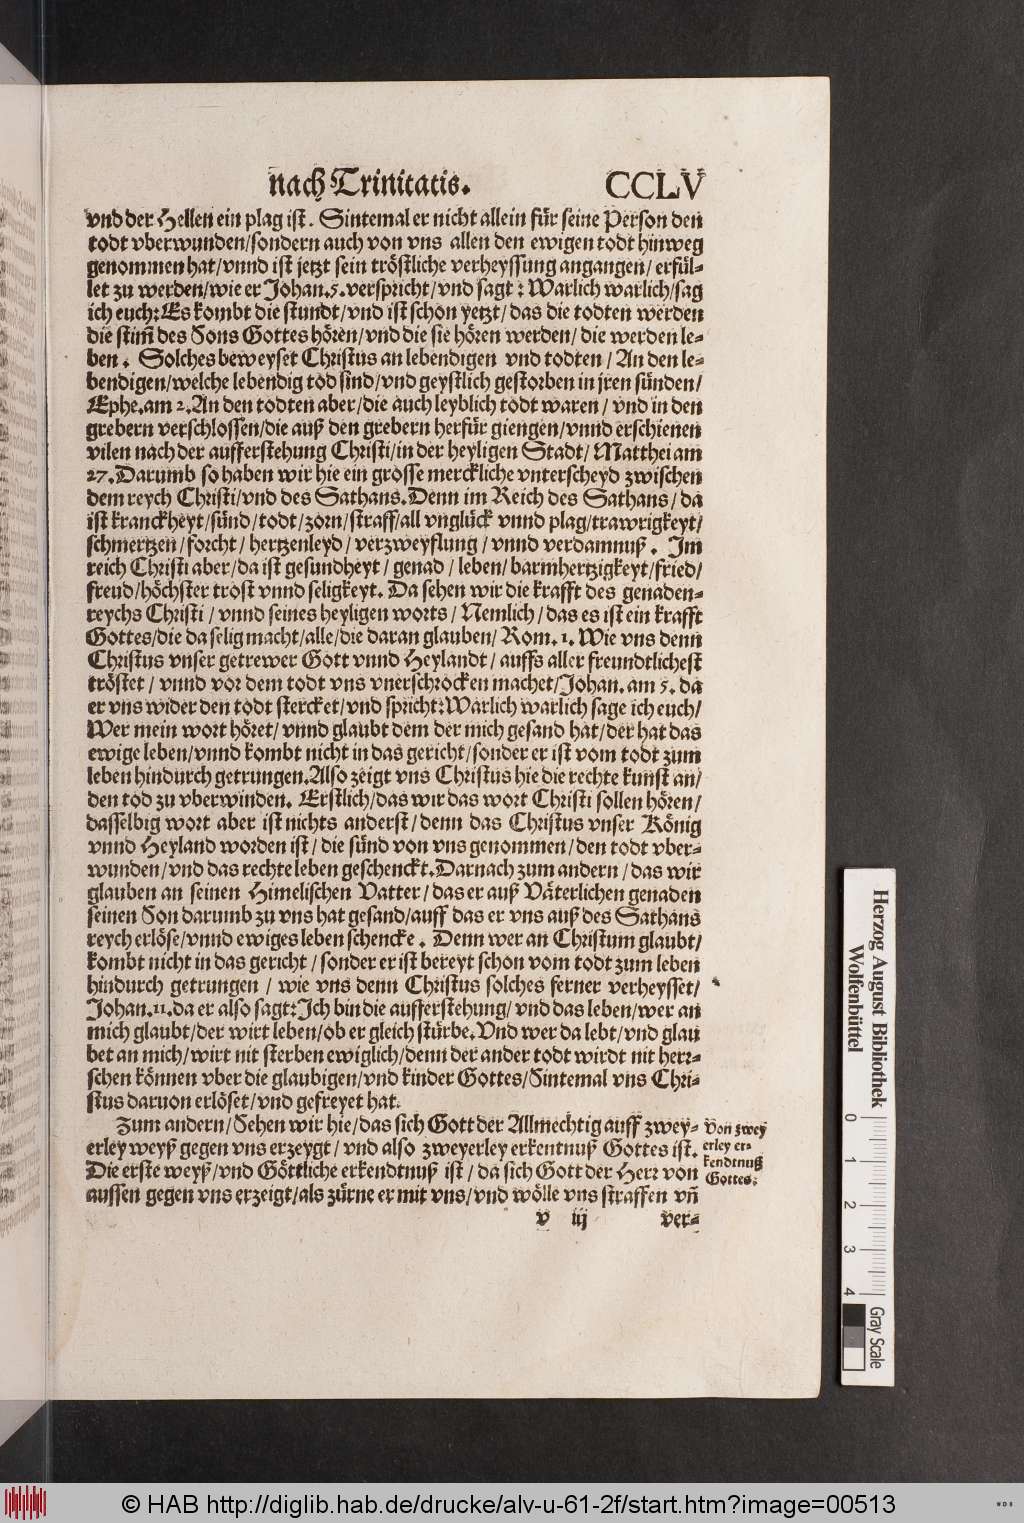 nach Trinitatis. CCLV
vnd der Hellen ein plag ist. Sintemal er nicht allein für seine Person den
todt vberwunden/sondern auch von vns allen den ewigen todt hinweg
genommen hat/vnnd ist jetzt sein tröstliche verheyssung angangen/ erfül-
let zu werden/wie er Johan.5.verspricht/vnd sagt: Warlich warlich/sag
ich euch: Es kombt die stundt/vnd ist schon yetzt/das die todten werden
die stim̃ des Sons Gottes hören/vnd die sie hören werden/ die werden le-
ben. Solches beweyset Christus an lebendigen vnd todten/ An den le-
bendigen/welche lebendig tod sind/vnd geystlich gestorben in jren sünden/
Ephe.am 2. An den todten aber/die auch leyblich todt waren/ vnd in den
grebern verschlossen/die auß den grebern herfür giengen/vnnd erschienen
vilen nach der aufferstehung Christi/in der heyligen Stadt/ Matthei am
27. Darumb so haben wir hie ein grosse merckliche vnterscheyd zwischen
dem reych Christi/vnd des Sathans. Denn im Reich des Sathans/ da
ist kranckheyt/sünd/todt/zorn/straff/all vnglück vnnd plag/trawrigkeyt/
schmertzen/forcht/ hertzenleyd/ verzweyflung/vnnd verdamnuß. Im
reich Christi aber/da ist gesundheyt/ genad/ leben/ barmhertzigkeyt/fried/
freud/höchster trost vnnd seligkeyt. Da sehen wir die krafft des genaden-
reychs Christi/ vnnd seines heyligen worts/ Nemlich/das es ist ein krafft
Gottes/die da selig macht/alle/die daran glauben/ Rom.1. Wie vns denn
Christus vnser getrewer Gott vnnd Heylandt/ auffs aller freundtlichest
tröstet/ vnnd vor dem todt vns vnerschrocken machet/Johan. am 5. da
er vns wider den todt stercket/vnd spricht: Warlich warlich sage ich euch/
Wer mein wort höret/ vnnd glaubt dem der mich gesand hat/der hat das
ewige leben/vnnd kombt nicht in das gericht/sonder er ist vom todt zum
leben hindurch getrungen. Also zeigt vns Christus hie die rechte kunst an/
den tod zu vberwinden. Erstlich/das wir das wort Christi sollen hören/
dasselbig wort aber ist nichts anderst/denn das Christus vnser König
vnnd Heyland worden ist/ die sünd von vns genommen/den todt vber-
wunden/vnd das rechte leben geschenckt. Darnach zum andern/das wir
glauben an seinen Himelischen Vatter/das er auß Väterlichen genaden
seinen Son darumb zu vns hat gesand/auff das er vns auß des Sathans
reych erlöse/vnnd ewiges leben schencke. Denn wer an Christum glaubt/
kombt nicht in das gericht/sonder er ist bereyt schon vom todt zum leben
hindurch getrungen/ wie vns denn Christus solches ferner verheysset/
Johan.11.da er also sagt: Ich bin die aufferstehung/vnd das leben/wer an
mich glaubt/der wirt leben/ob er gleich stürbe. Vnd wer da lebt/vnd glau
bet an mich/wirt nit sterben ewiglich/denn der ander todt wirdt nit herr-
schen können vber die glaubigen/vnd kinder Gottes/Sintemal vns Chri-
stus daruon erlöset/vnd gefreyet hat.
Zum andern/Sehen wir hie/das sich Gott der Allmechtig auff zwey-
erley weyß gegen vns erzeygt/ vnd also zweyerley erkentnuß Gottes ist.
Die erste weyß/vnd Göttliche erkendtnuß ist/ da sich Gott der Herr von
aussen gegen vns erzeigt/als zürne er mit vns/vnd wölle vns straffen vñ
Von zwey
erley er-
kendtnuß
Gottes.
v iij ver-
Herzog August Bibliothek
Wolfenbüttel
0 1 2 3 4
Gray Scale
© HAB http://diglib.hab.de/drucke/alv-u-61-2f/start.htm?image=00513
WDB